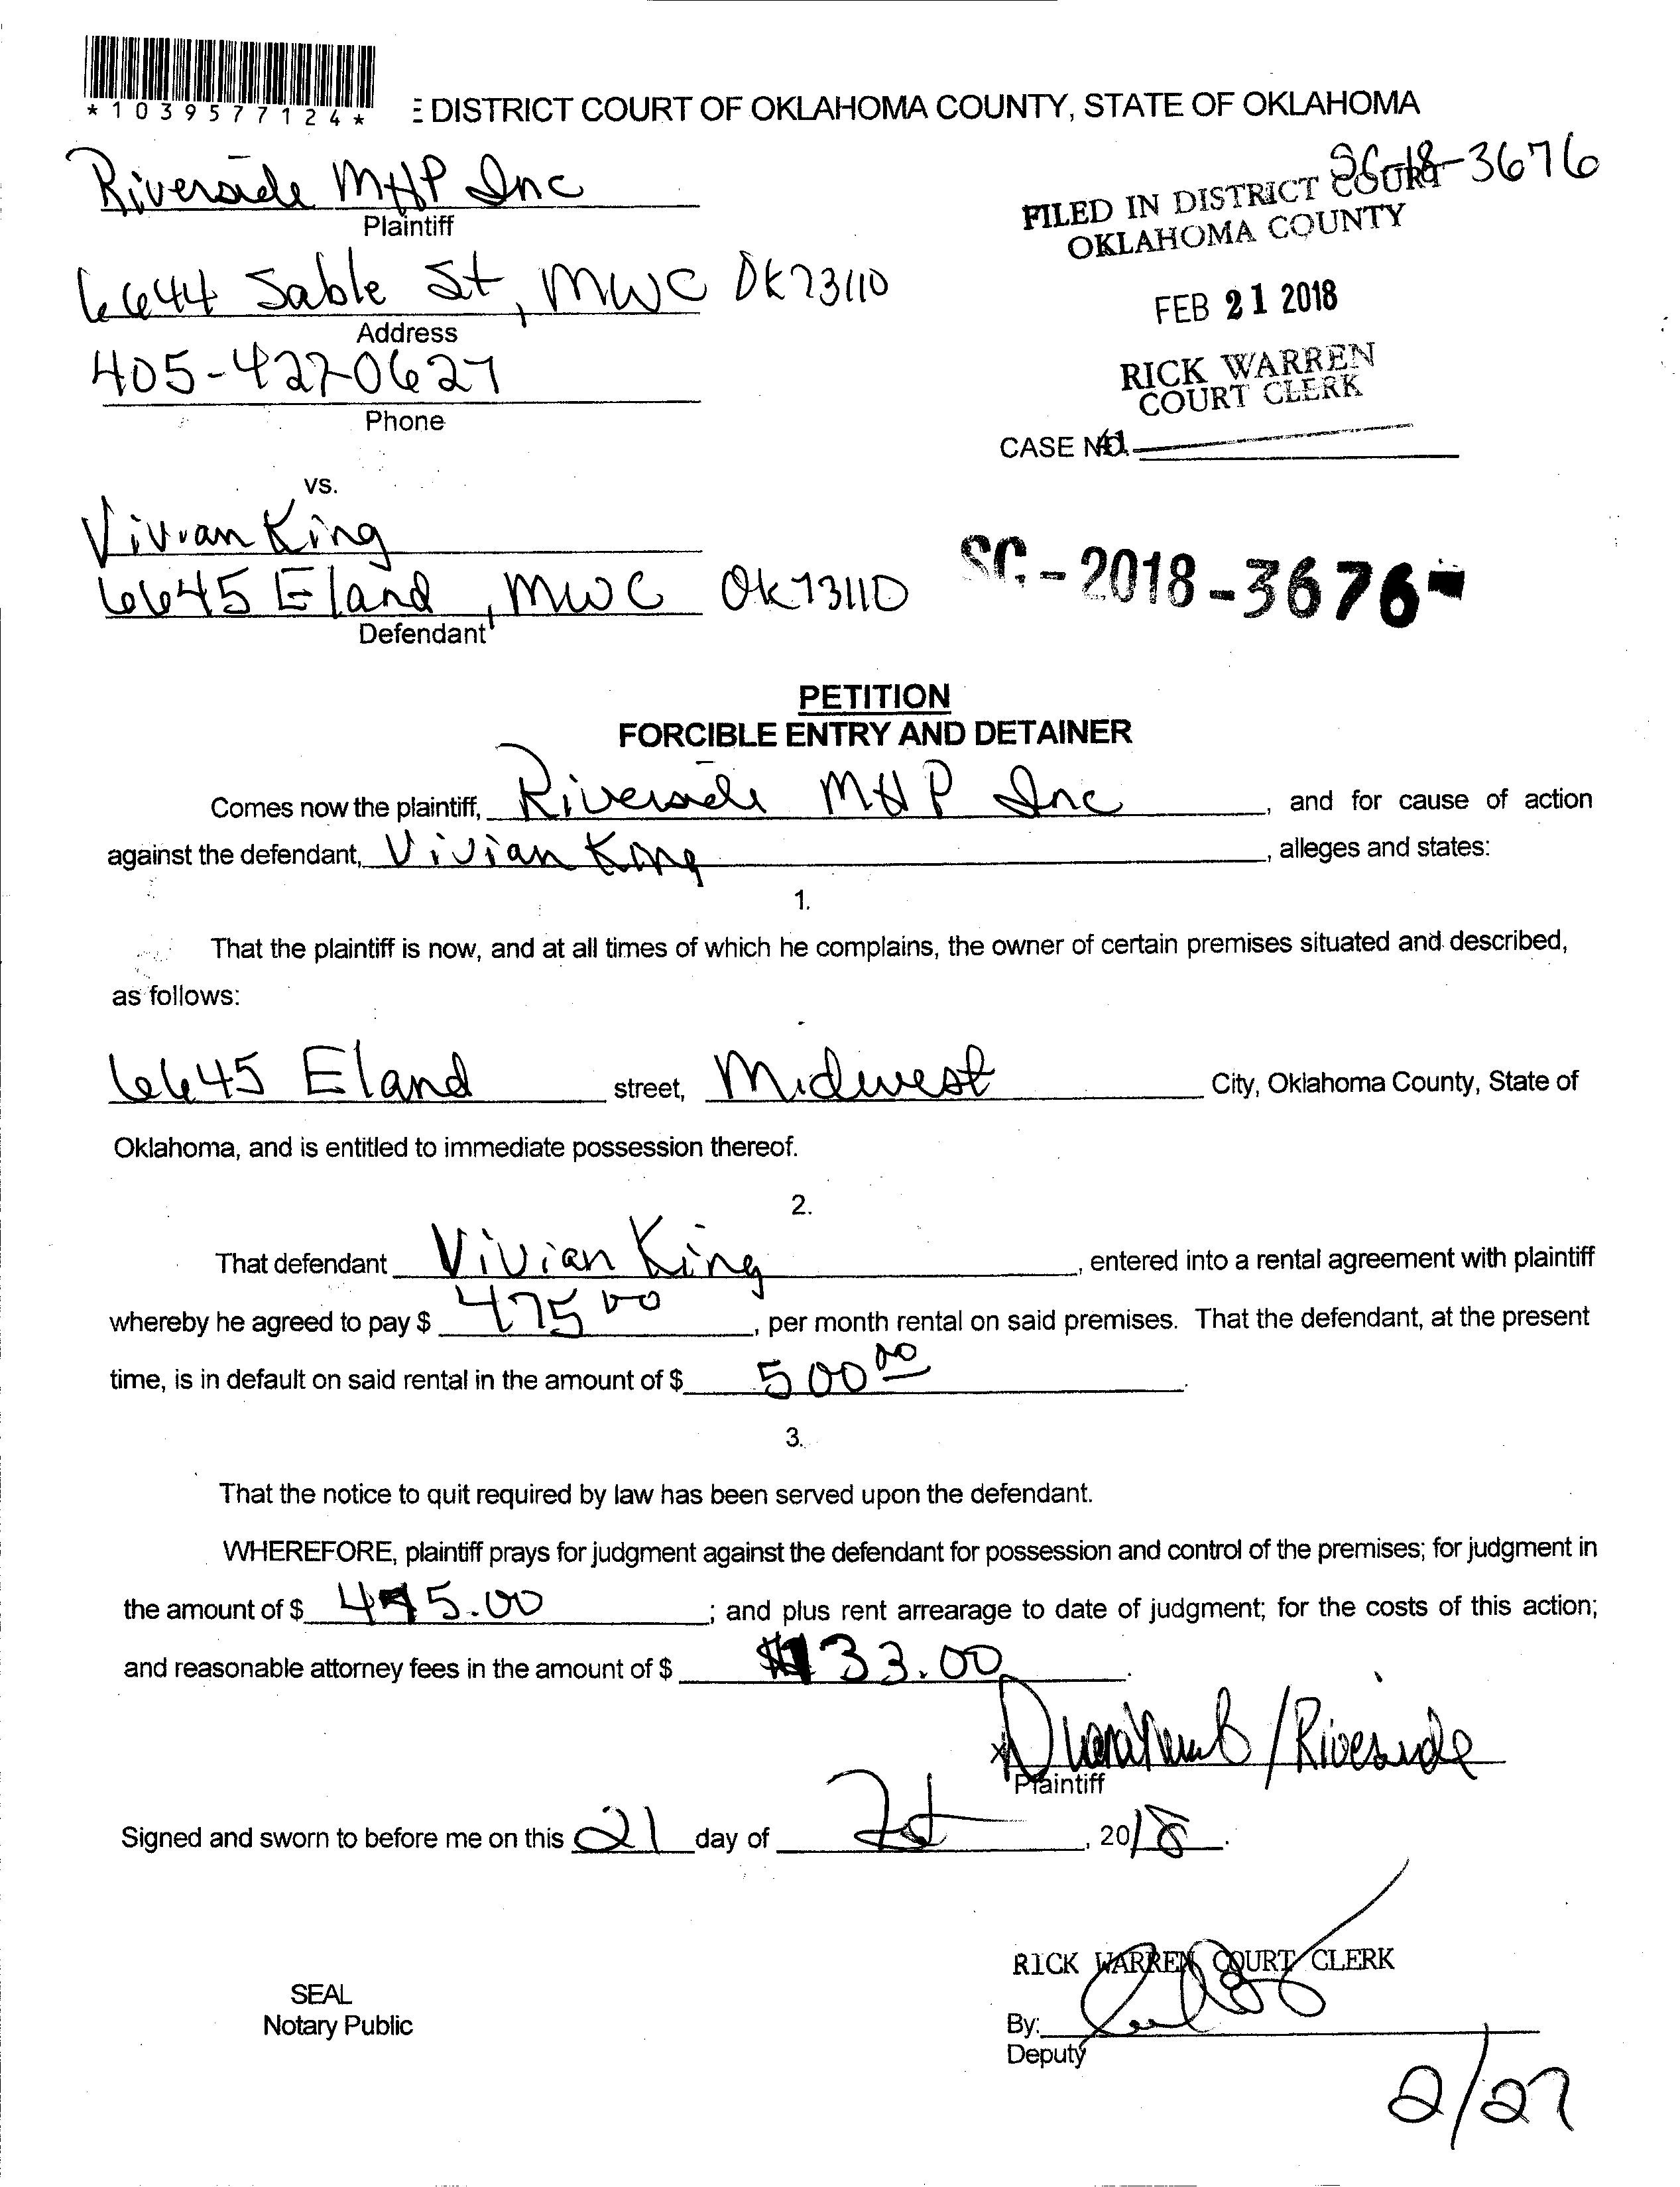 *1039577124*
E DISTRICT COURT OF OKLAHOMA COUNTY, STATE OF OKLAHOMA
SC-18-3676
Riverside MHP Inc
Plaintiff
FILED IN DISTRICT COURT
OKLAHOMA COUNTY
6644 Sable St, MWC OK 73110
Address
FEB 21 2018
405-427-0627
Phone
RICK WARREN
COURT CLERK
CASE NO.
41
vs.
Vivian King
6645 Eland, MWC OK 73110
Defendant
SC-2018-3676-
PETITION
FORCIBLE ENTRY AND DETAINER
Comes now the plaintiff, Riverside MHP Inc, and for cause of action
against the defendant, Vivian King, alleges and states:
1.
That the plaintiff is now, and at all times of which he complains, the owner of certain premises situated and described,
as follows:
6645 Eland street, Midwest City, Oklahoma County, State of
Oklahoma, and is entitled to immediate possession thereof.
2.
That defendant Vivian King, entered into a rental agreement with plaintiff
whereby he agreed to pay $ 475 00, per month rental on said premises. That the defendant, at the present
time, is in default on said rental in the amount of $ 500 00.
3.
That the notice to quit required by law has been served upon the defendant.
WHEREFORE, plaintiff prays for judgment against the defendant for possession and control of the premises; for judgment in
the amount of $ 475.00; and plus rent arrearage to date of judgment; for the costs of this action;
and reasonable attorney fees in the amount of $ $133.00.
x /Riverside
Plaintiff
Signed and sworn to before me on this 21 day of , 2018.
RICK WARREN COURT CLERK
SEAL
Notary Public
By:
Deputy
2/27